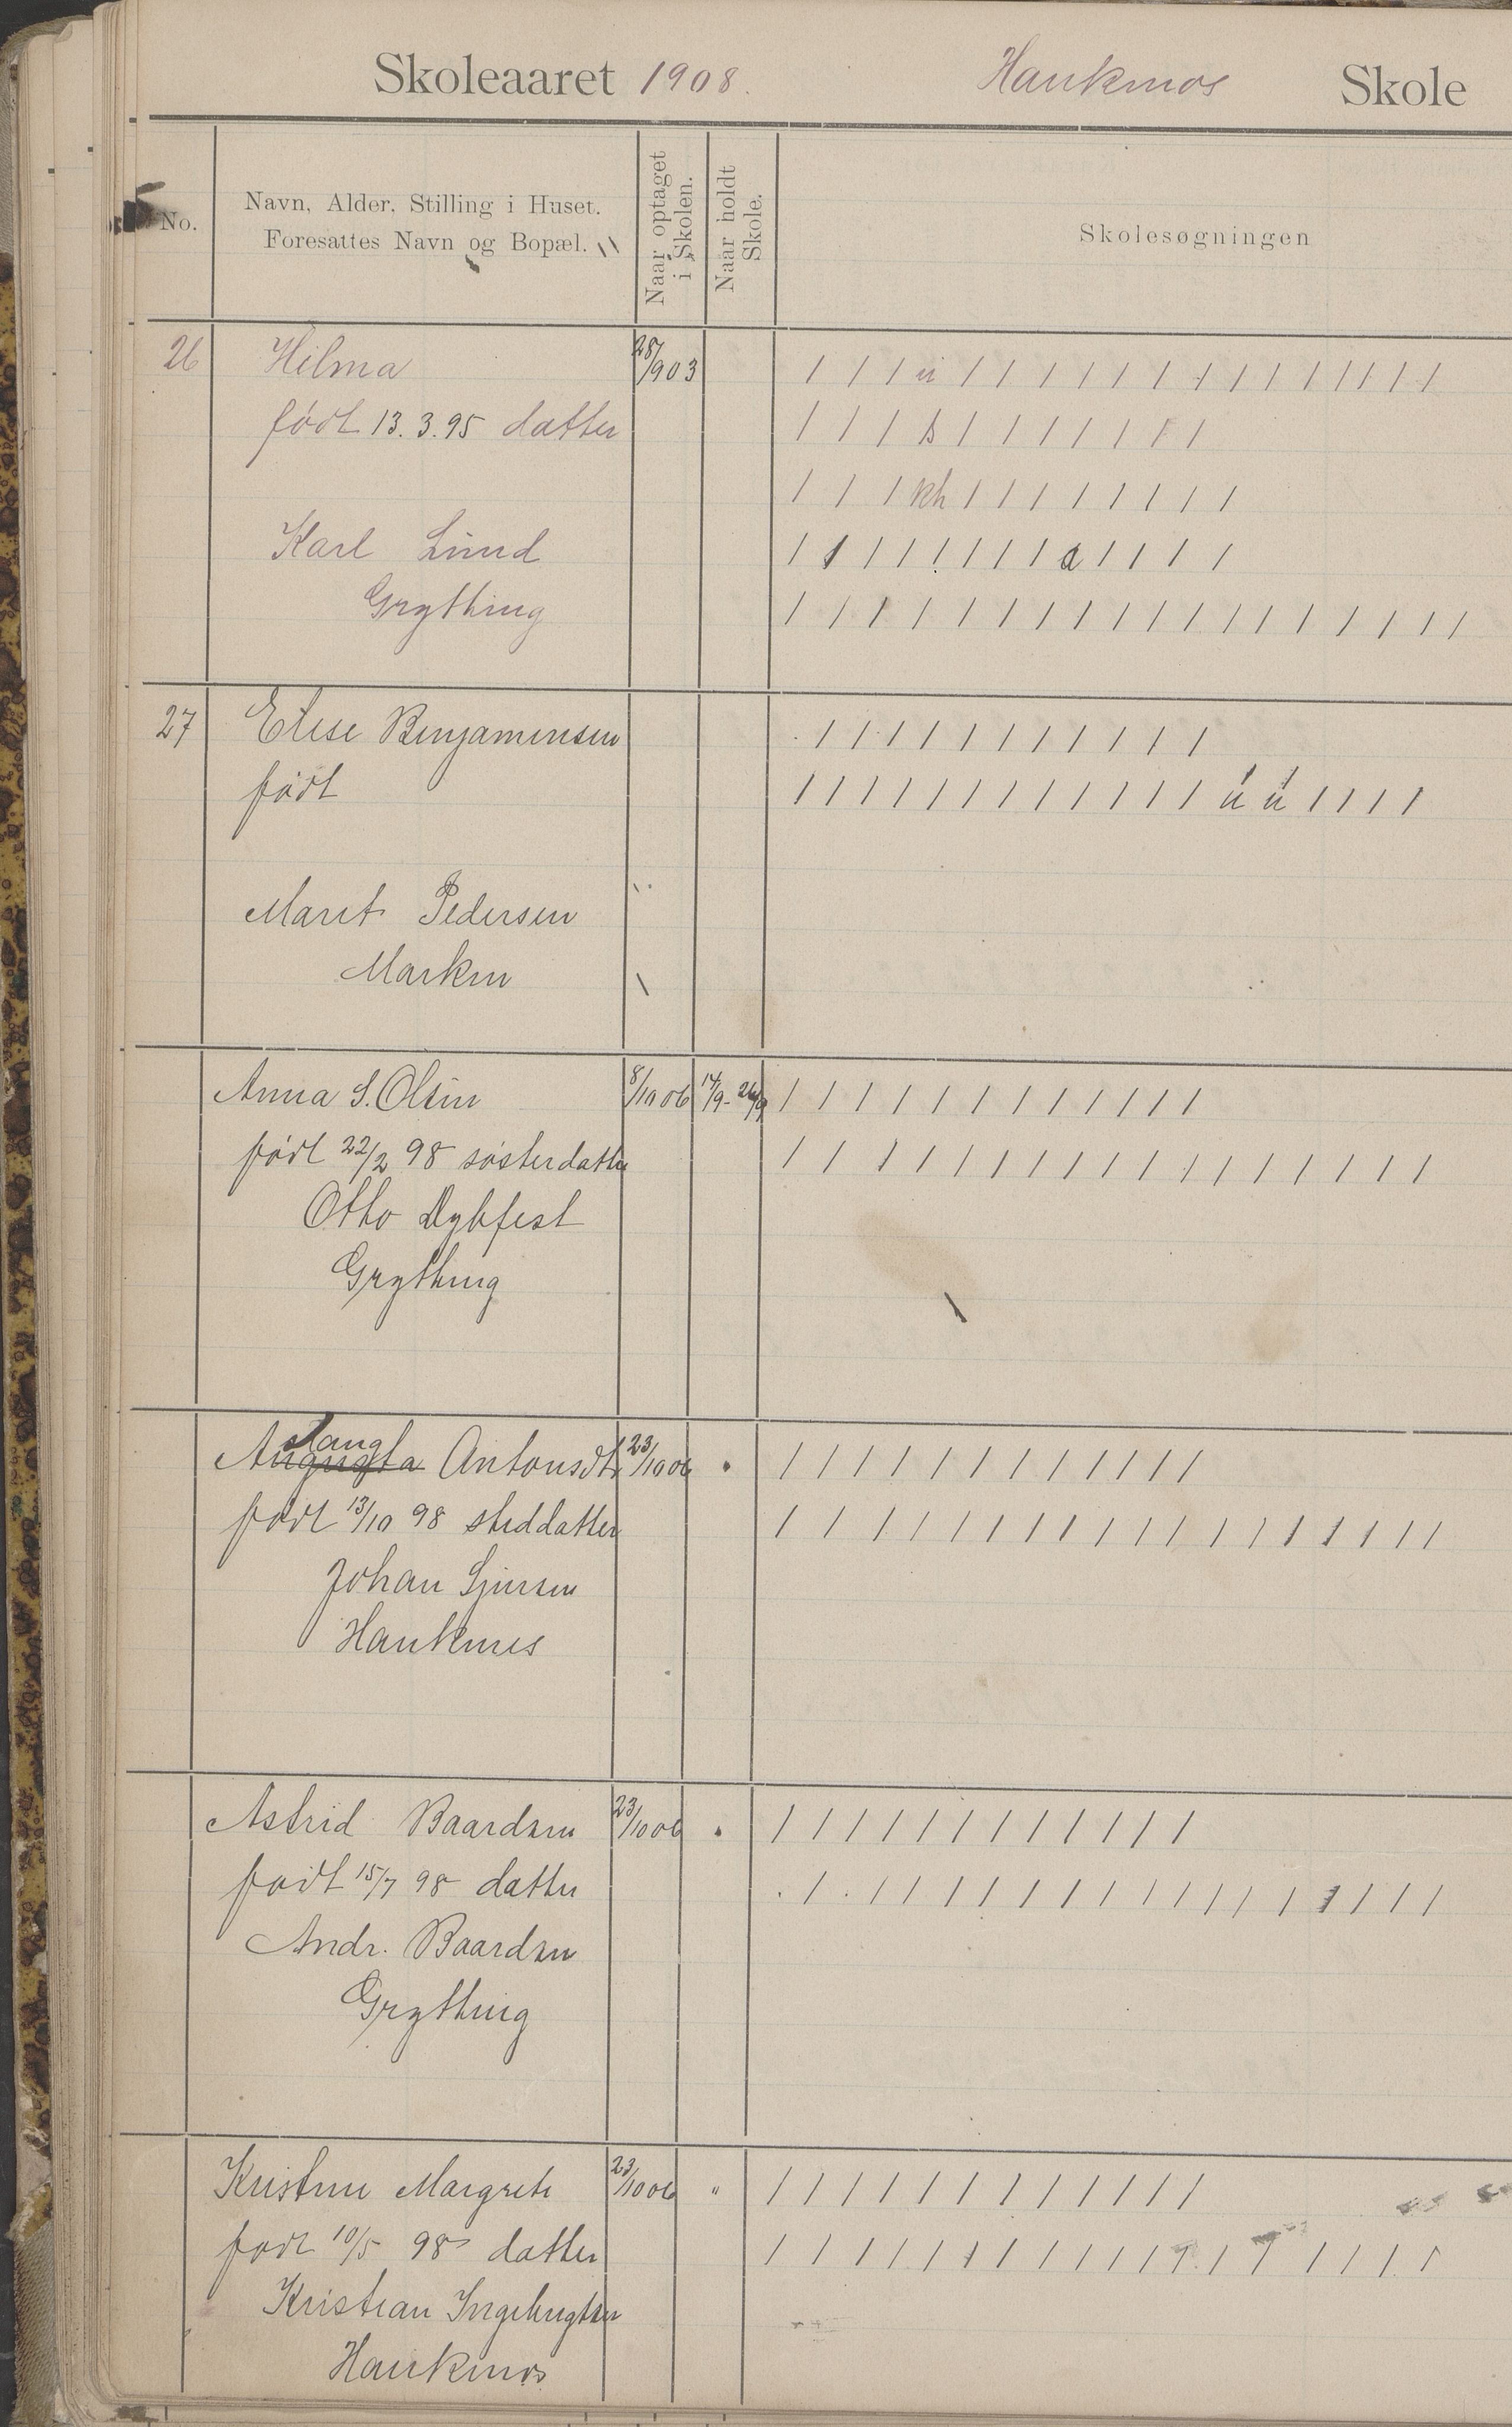 Skoleaaret 1908. Haukmos Skole
No.
Navn, Alder, Stilling i Huset.
Foresattes Navn og Bopæl.
Naar optaget i Skolen.
Naar holdt Skole.
Skolesøgningen
26 Hilma 28/903 / / / u / / / / / / / / / / / / / /
født 13.3.95 datter / / / s / / / / / / /
/ / / kh / / / / / / / /
Karl Lund / / / / / / / a / / / /
Grything / / / / / / / / / / / / / / / / / /
27 Elise Benjaminsen / / / / / / / / / / /
født / / / / / / / / / / / / ú ú / / / /
Marit Pedersen
Marken
Anna S. Olsen 8/10 06 14/9 - 26/9 / / / / / / / / / / / /
født 22/2 98 søsterdatter / / / / / / / / / / / / / / / / /
Otto Dybfest
Grything
Aslaug
Augusta Antonsdt. 23/10 06 / / / / / / / / / / / /
født 13/10 98 steddatter / / / / / / / / / / / / / / / / / /
Johan Sjursen
Hauknes
Astrid Baardsen 23/10 06 / / / / / / / / / / / /
født 15/7 98 datter . / . / / / / / / / / / / / / / / / /
Andr. Baardsen
Grything
Kristine Margrete 23/10 06 " / / / / / / / / / / / /
født 10/5 98 datter / / / / / / / / / / / / / / / / / /
Kristian Ingebrigtsen
Haukmos